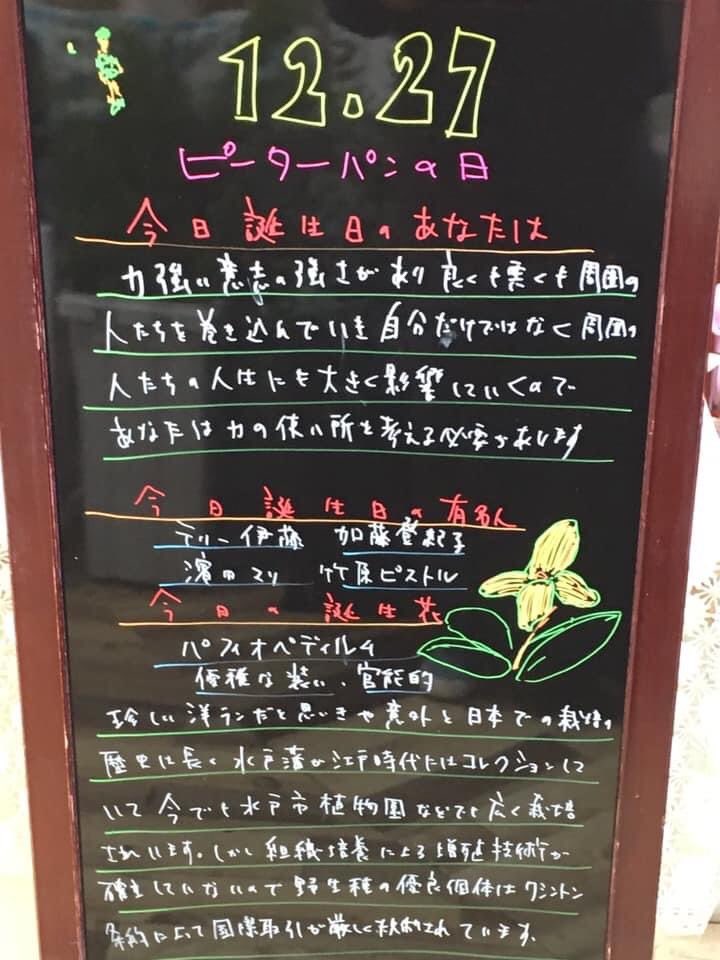 12.27
ピーターパンの日
今日誕生日のあなたは
力強い意志の強さがあり良くも悪くも周囲の
人たちを巻き込んでいき自分だけではなく周囲の
人たちの人生にも大きく影響していくので
あなたは力の使い所を考える必要があります
今日誕生日の有名人
テリー伊藤 加藤登紀子
濱田マリ 竹原ピストル
今日の誕生花
パフィオペディルム
優雅な装い、官能的
珍しい洋ランだと思いきや意外と日本での栽培の
歴史は長く水戸藩が江戸時代にはコレクションして
いて今でも水戸市植物園などでも広く栽培
されています。しかし組織培養による増殖技術が
確立していないので野生種の優良個体はワシントン
条約によって国際取引が厳しく規制されています。